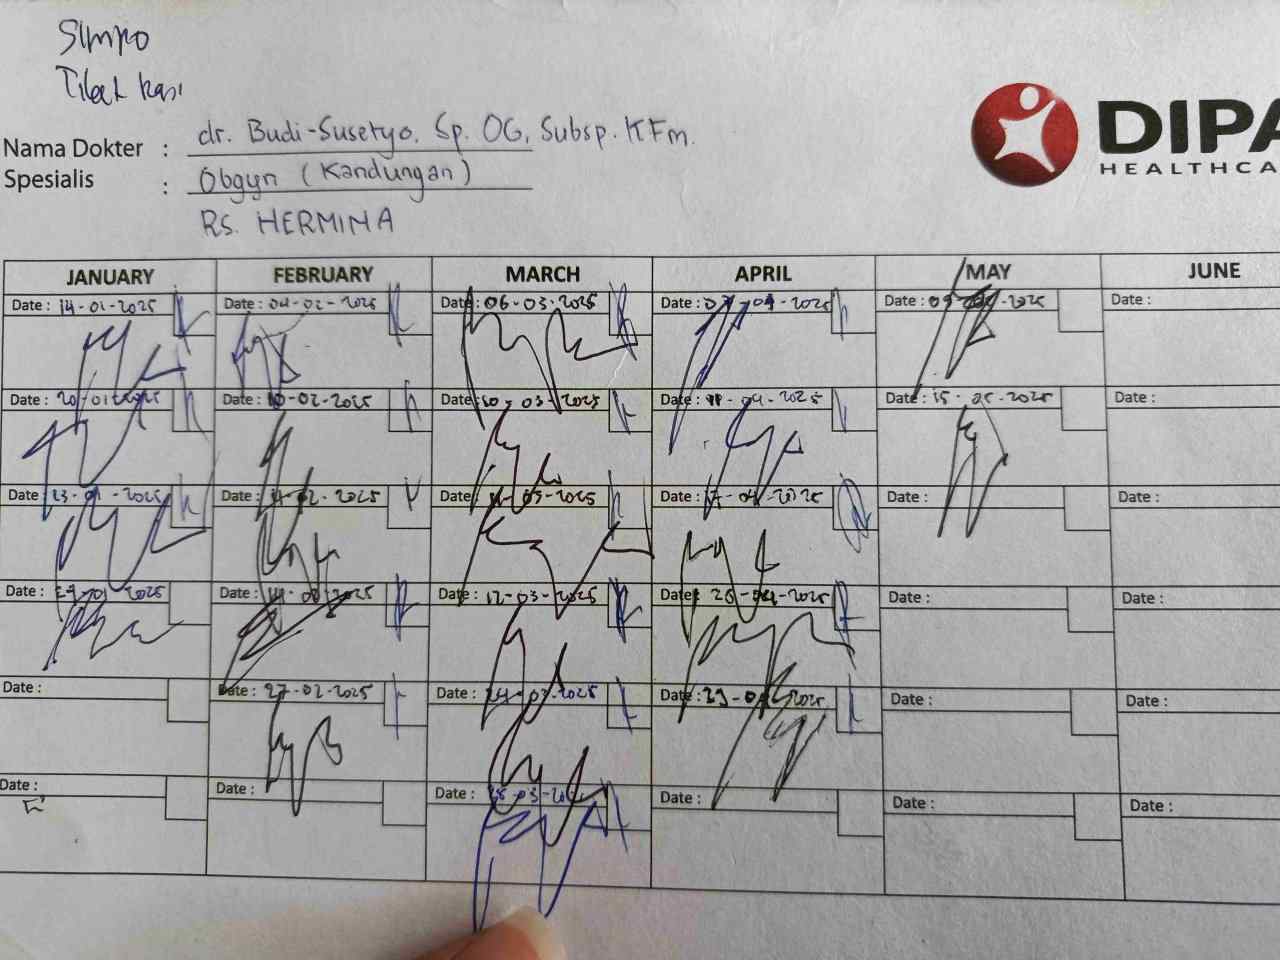 Simpo
Nama Dokter : dr. Budi-Susetyo, Sp. OG, Subsp. KFm.
Spesialis : Obgyn (Kandungan)
RS. HERMINA
DIPA
HEALTHCA
JANUARY FEBRUARY MARCH APRIL MAY JUNE
Date : 14-01-2025 Date : 04-02-2025 Date : 06-03-2025 Date : 07-04-2025 Date : 09-05-2025 Date :
Date : 20-01-2025 Date : 10-02-2025 Date : 10-03-2025 Date : 11-04-2025 Date : 15-05-2025 Date :
Date : 23-01-2025 Date : 14-02-2025 Date : 11-03-2025 Date : 17-04-2025 Date : Date :
Date : 29-01-2025 Date : 02-2025 Date : 12-03-2025 Date : 26-04-2025 Date : Date :
Date : Date : 27-02-2025 Date : 24-03-2025 Date : 29-04-2025 Date : Date :
Date : Date : Date : Date : Date : Date :